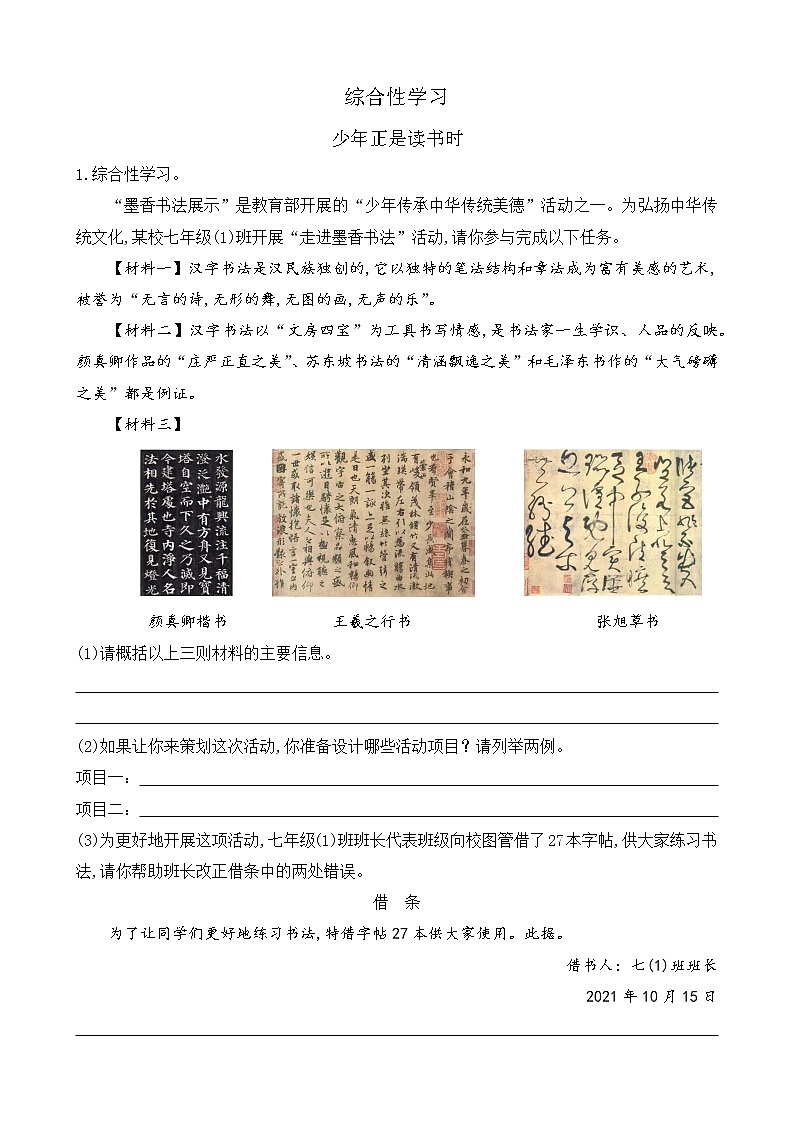 综合性学习
少年正是读书时
1.综合性学习。
“墨香书法展示”是教育部开展的“少年传承中华传统美德”活动之一。为弘扬中华传
统文化,某校七年级(1)班开展“走进墨香书法”活动,请你参与完成以下任务。
【材料一】汉字书法是汉民族独创的,它以独特的笔法结构和章法成为富有美感的艺术,
被誉为“无言的诗,无形的舞,无图的画,无声的乐”。
【材料二】汉字书法以“文房四宝”为工具书写情感,是书法家一生学识、人品的反映。
颜真卿作品的“庄严正直之美”、苏东坡书法的“清涵飘逸之美”和毛泽东书作的“大气磅礴
之美”都是例证。
【材料三】
水發源龍興流注千福清
澄泛灔中有方舟又見寶
塔自空而下久之乃誠即
今建塔處也寺內淨人名
法相先於其地復見燈光
颜真卿楷书
王羲之行书
张旭草书
(1)请概括以上三则材料的主要信息。
(2)如果让你来策划这次活动,你准备设计哪些活动项目？请列举两例。
项目一：
项目二：
(3)为更好地开展这项活动,七年级(1)班班长代表班级向校图管借了27本字帖,供大家练习书
法,请你帮助班长改正借条中的两处错误。
借　条
为了让同学们更好地练习书法,特借字帖27本供大家使用。此据。
借书人：七(1)班班长
2021年10月15日